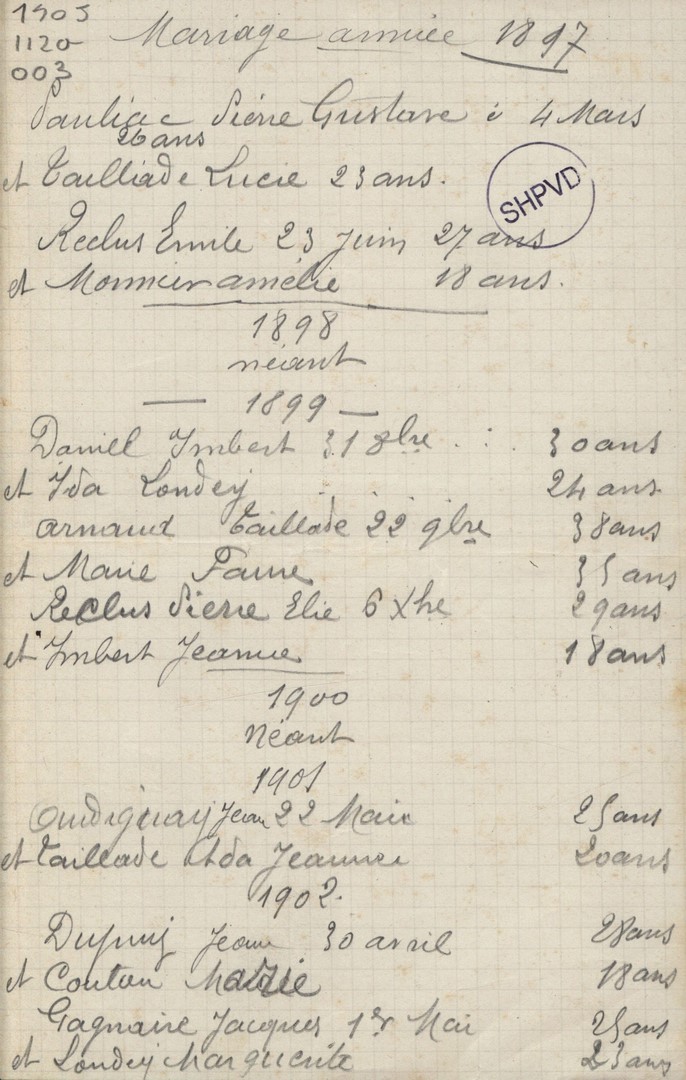 1905
1120
003
Mariage année 1897
Pauliac Pierre Gustave 4 Mars
26 ans
et Tailliade Lucie 23 ans.
SHPVD
Reclus Emile 23 Juin 27 ans
et Monnier amélie 18 ans.
1898
néant
— 1899 —
Daniel Imbert 31 8bre . : 30 ans
et Ida Londeij 24 ans.
arnaud Taillade 22 9bre 38 ans
et Marie Faure 35 ans
Reclus Pierre Elie 6 Xbre 29 ans
et Imbert Jeanne 18 ans
1900
Néant
1901
Jean 22 Mai 25 ans
et Taillade Ada Jeanne 20 ans
1902.
Dupuij Jean 30 avril 28 ans
et Coutou Marie 18 ans
Gagnaire Jacques 1er Mai 25 ans
et Londeij Marguerite 23 ans